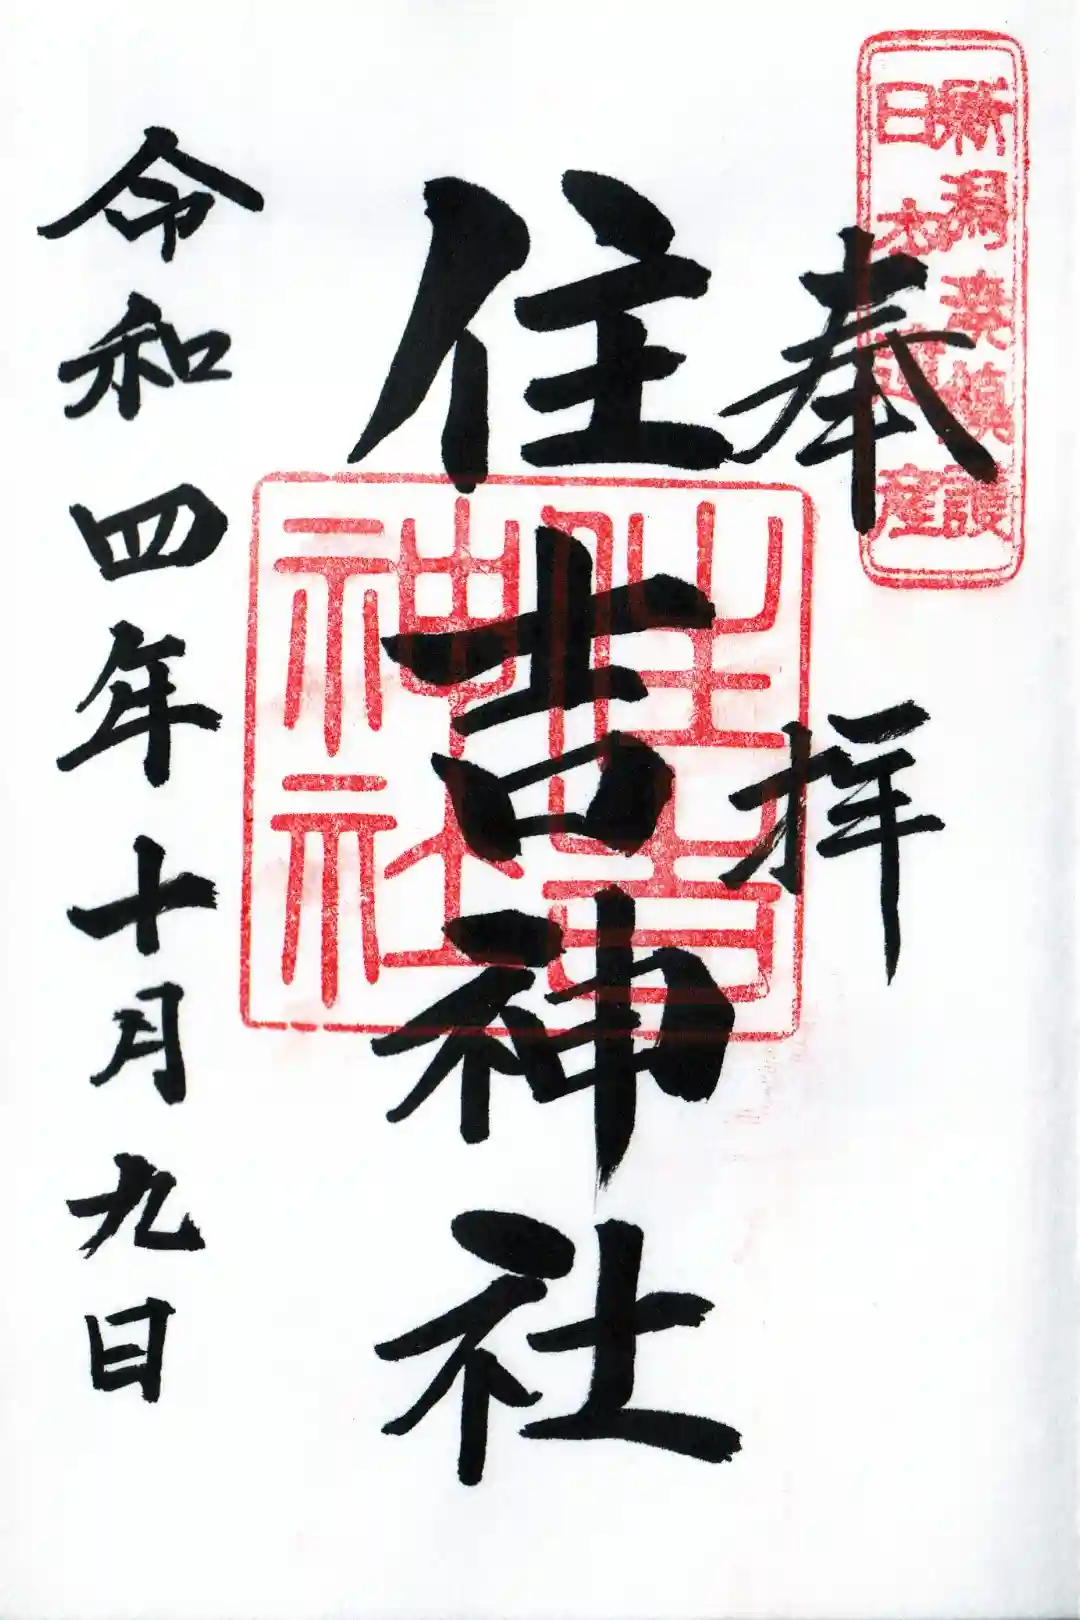 新潟湊鎮護
日本海運産
奉拝
住吉神社
住吉神社
令和四年十月九日